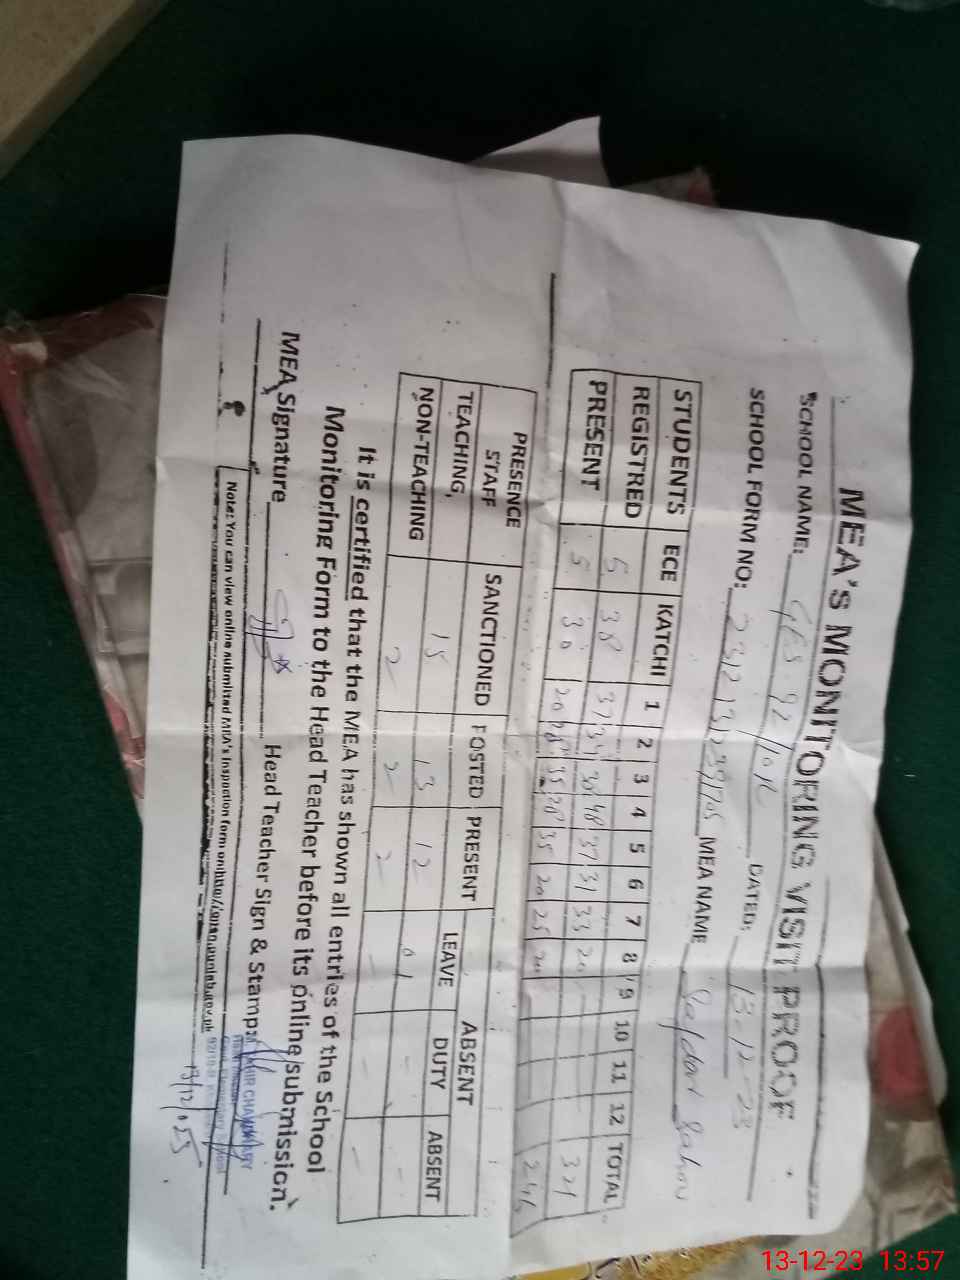 MEA'S MONITORING VISIT PROOF
SCHOOL NAME: GES. 92/10R DATED: 13-12-23
SCHOOL FORM NO: MEA NAME Safdar
STUDENTS ECE KATCHI 1 2 3 4 5 6 7 8 9 10 11 12 TOTAL
REGISTRED 5 38 37 34 38 48 37 31 33 20 321
PRESENT 5 30 20 28 35 28 35 20 25 20 246
PRESENCE STAFF SANCTIONED POSTED PRESENT ABSENT
LEAVE DUTY ABSENT
TEACHING 15 13 12 01 - -
NON-TEACHING 2 2 2 - - -
It is certified that the MEA has shown all entries of the School
Monitoring Form to the Head Teacher before its online submission.
MEA Signature Head Teacher Sign & Stamp:
TAHIR CHAUDHARY
Govt. Elementary School
92/10-R
Note: You can view online submitted MEA's Inspection form on:
13-12-23 13:57